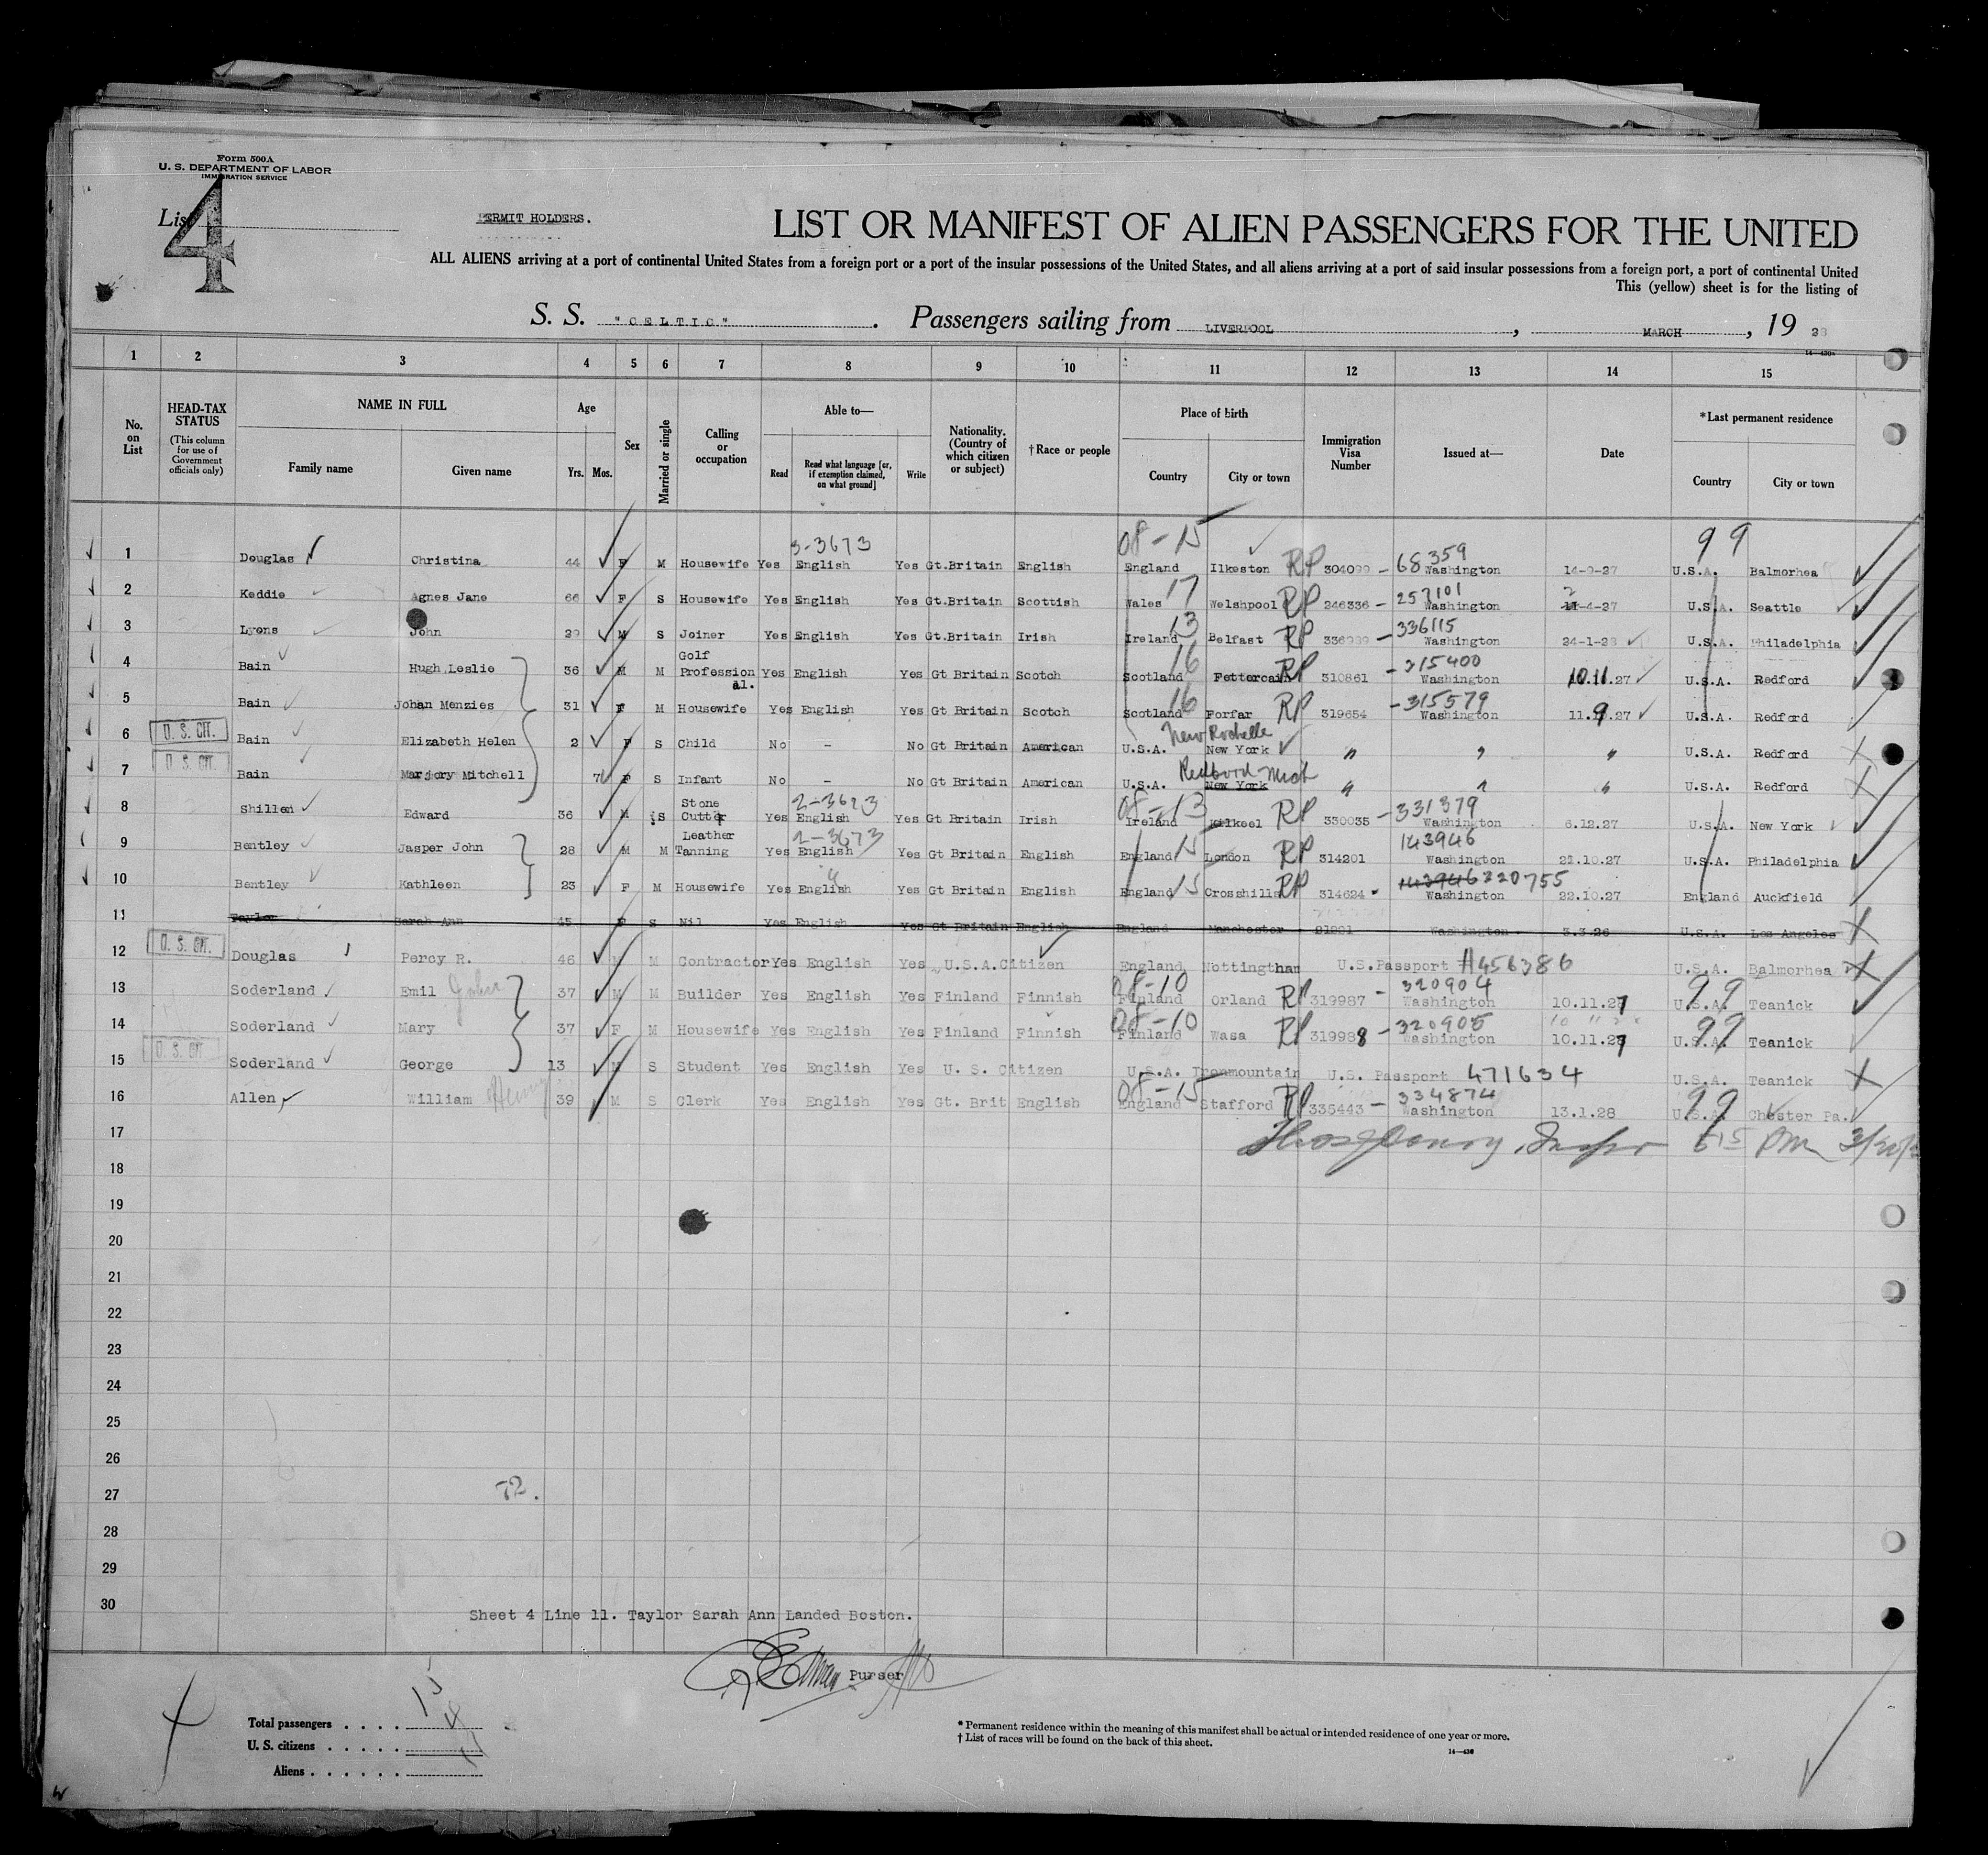 Form 500A
U. S. DEPARTMENT OF LABOR
IMMIGRATION SERVICE
List 4
PERMIT HOLDERS.
LIST OR MANIFEST OF ALIEN PASSENGERS FOR THE UNITED
ALL ALIENS arriving at a port of continental United States from a foreign port or a port of the insular possessions of the United States, and all aliens arriving at a port of said insular possessions from a foreign port, a port of continental United
This (yellow) sheet is for the listing of
S. S. "CELTIC". Passengers sailing from LIVERPOOL, MARCH, 19 28
14—430a
1 2 3 4 5 6 7 8 9 10 11 12 13 14 15
No. on List
HEAD-TAX STATUS (This column for use of Government officials only)
NAME IN FULL Family name Given name
Age Yrs. Mos.
Sex
Married or single
Calling or occupation
Able to— Read Read what language [or, if exemption claimed, on what ground] Write
Nationality. (Country of which citizen or subject)
†Race or people
Place of birth Country City or town
Immigration Visa Number
Issued at—
Date
*Last permanent residence Country City or town
3-3673 08-15 68359 99
1 Douglas Christina 44 F M Housewife Yes English Yes Gt.Britain English England Ilkeston RP 304099 - Washington 14-9-27 U.S.A. Balmorhea
17 257101 2
2 Keddie Agnes Jane 66 F S Housewife Yes English Yes Gt.Britain Scottish Wales Welshpool RP 246336 - Washington -4-27 U.S.A. Seattle
13 336115
3 Lyons John 29 M S Joiner Yes English Yes Gt.Britain Irish Ireland Belfast RP - Washington 24-1-28 U.S.A. Philadelphia
16 -315400
4 Bain Hugh Leslie 36 M M Golf Professional. Yes English Yes Gt Britain Scotch Scotland Fettercairn RP 310861 Washington 10.11.27 U.S.A. Redford
16 -315579
5 Bain Johan Menzies 31 F M Housewife Yes English Yes Gt Britain Scotch Scotland Forfar RP 319654 Washington 11.9.27 U.S.A. Redford
New Rochelle
6 U. S. CIT. Bain Elizabeth Helen 2 F S Child No - No Gt Britain American U.S.A. New York " " " U.S.A. Redford
Redford Mich
7 U. S. CIT. Bain Marjory Mitchell 7 F S Infant No - No Gt Britain American U.S.A. New York " " " U.S.A. Redford
2-3673 08-13 -331379
8 Shillen Edward 36 M S Stone Cutter Yes English Yes Gt Britain Irish Ireland Kilkeel RP 330035 Washington 6.12.27 U.S.A. New York
2-3673 15 143946
9 Bentley Jasper John 28 M M Leather Tanning Yes English Yes Gt Britain English England London RP 314201 Washington 21.10.27 U.S.A. Philadelphia
15 143946 320755
10 Bentley Kathleen 23 F M Housewife Yes English Yes Gt Britain English England Crosshills RP 314624 - Washington 22.10.27 England Auckfield
11 Taylor Sarah Ann 45 F S Nil Yes English Yes Gt Britain English England Manchester Washington 3.3.26 U.S.A. Los Angeles
12 U. S. CIT. Douglas Percy R. 46 M M Contractor Yes English Yes U.S.A.Citizen England Nottingthan U.S.Passport 456386 U.S.A. Balmorhea
08-10 - 320904 99
13 Soderland Emil 37 M M Builder Yes English Yes Finland Finnish Finland Orland RP 319987 Washington 10.11.27 U.S.A. Teanick
08-10 -320905 99
14 Soderland Mary 37 F M Housewife Yes English Yes Finland Finnish Finland Wasa RP 319988 Washington 10.11.27 U.S.A. Teanick
15 U. S. CIT. Soderland George 13 M S Student Yes English Yes U. S. Citizen U.S.A. Ironmountain U.S. Passport 471634 U.S.A. Teanick
08-15 334874 99
16 Allen William Henry 39 M S Clerk Yes English Yes Gt. Brit English England Stafford RP 335443 - Washington 13.1.28 U.S.A. Chester Pa.
17
18
19
20
21
22
23
24
25
26
27
28
29
30
Sheet 4 Line 11. Taylor Sarah Ann Landed Boston.
Purser
Total passengers . . . .
U. S. citizens . . . . .
Aliens . . . . . .
* Permanent residence within the meaning of this manifest shall be actual or intended residence of one year or more.
† List of races will be found on the back of this sheet.
14—430